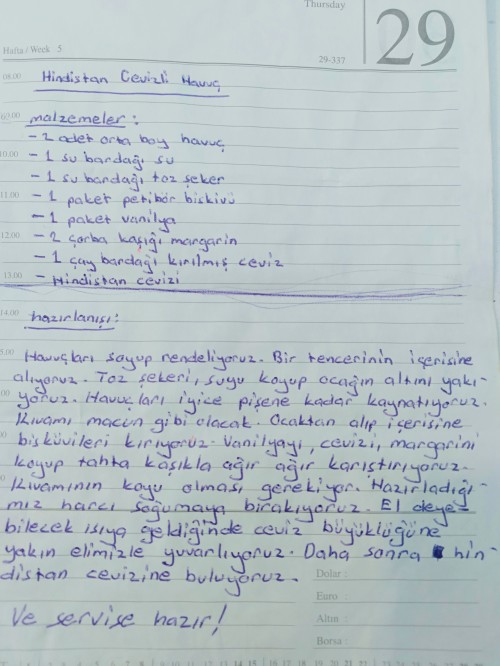 Thursday
29
Hafta / Week 5
29-337
08.00 Hindistan Cevizli Havuç
09.00 malzemeler :
- 2 adet orta boy havuç
10.00 - 1 su bardağı su
- 1 su bardağı toz şeker
11.00 - 1 paket petibör bisküvi
- 1 paket vanilya
12.00 - 2 çorba kaşığı margarin
- 1 çay bardağı kırılmış ceviz
13.00 - Hindistan cevizi
14.00 hazırlanışı :
Havuçları soyup rendeliyoruz. Bir tencerinin içerisine
alıyoruz. Toz şekeri, suyu koyup ocağın altını yakı-
yoruz. Havuçları iyice pişene kadar kaynatıyoruz.
Kıvamı macun gibi olacak. Ocaktan alıp içerisine
bisküvileri kırıyoruz. Vanilyayı, cevizi, margarini
koyup tahta kaşıkla ağır ağır karıştırıyoruz.
Kıvamının koyu olması gerekiyor. Hazırladığı-
mız harcı soğumaya bırakıyoruz. El deye-
bilecek ısıya geldiğinde ceviz büyüklüğüne
yakın elimizle yuvarlıyoruz. Daha sonra hin-
distan cevizine buluyoruz.
Dolar :
Euro :
Ve servise hazır!
Altın :
Borsa :